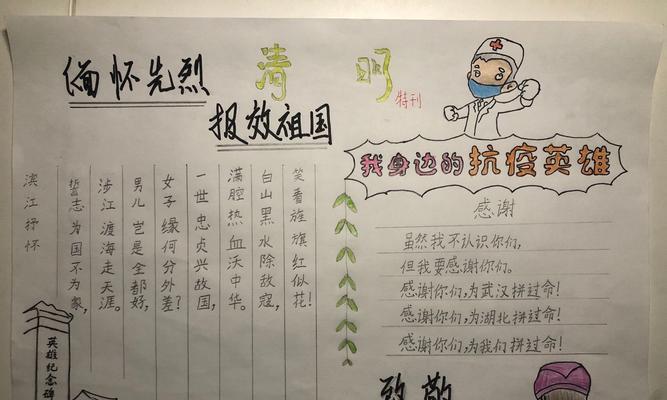 缅怀先烈
清明
特刊
报效祖国
滨江抒怀
誓志为国不为家,
涉江渡海走天涯。
男儿岂是全都好,
女子缘何分外差?
一世忠贞兴故国,
满腔热血沃中华。
白山黑水除敌寇,
笑看旌旗红似花!
英雄纪念碑
我身边的抗疫英雄
感谢
虽然我不认识你们,
但我要感谢你们。
感谢你们,为武汉拼过命!
感谢你们,为湖北拼过命!
感谢你们,为我们拼过命!
致敬